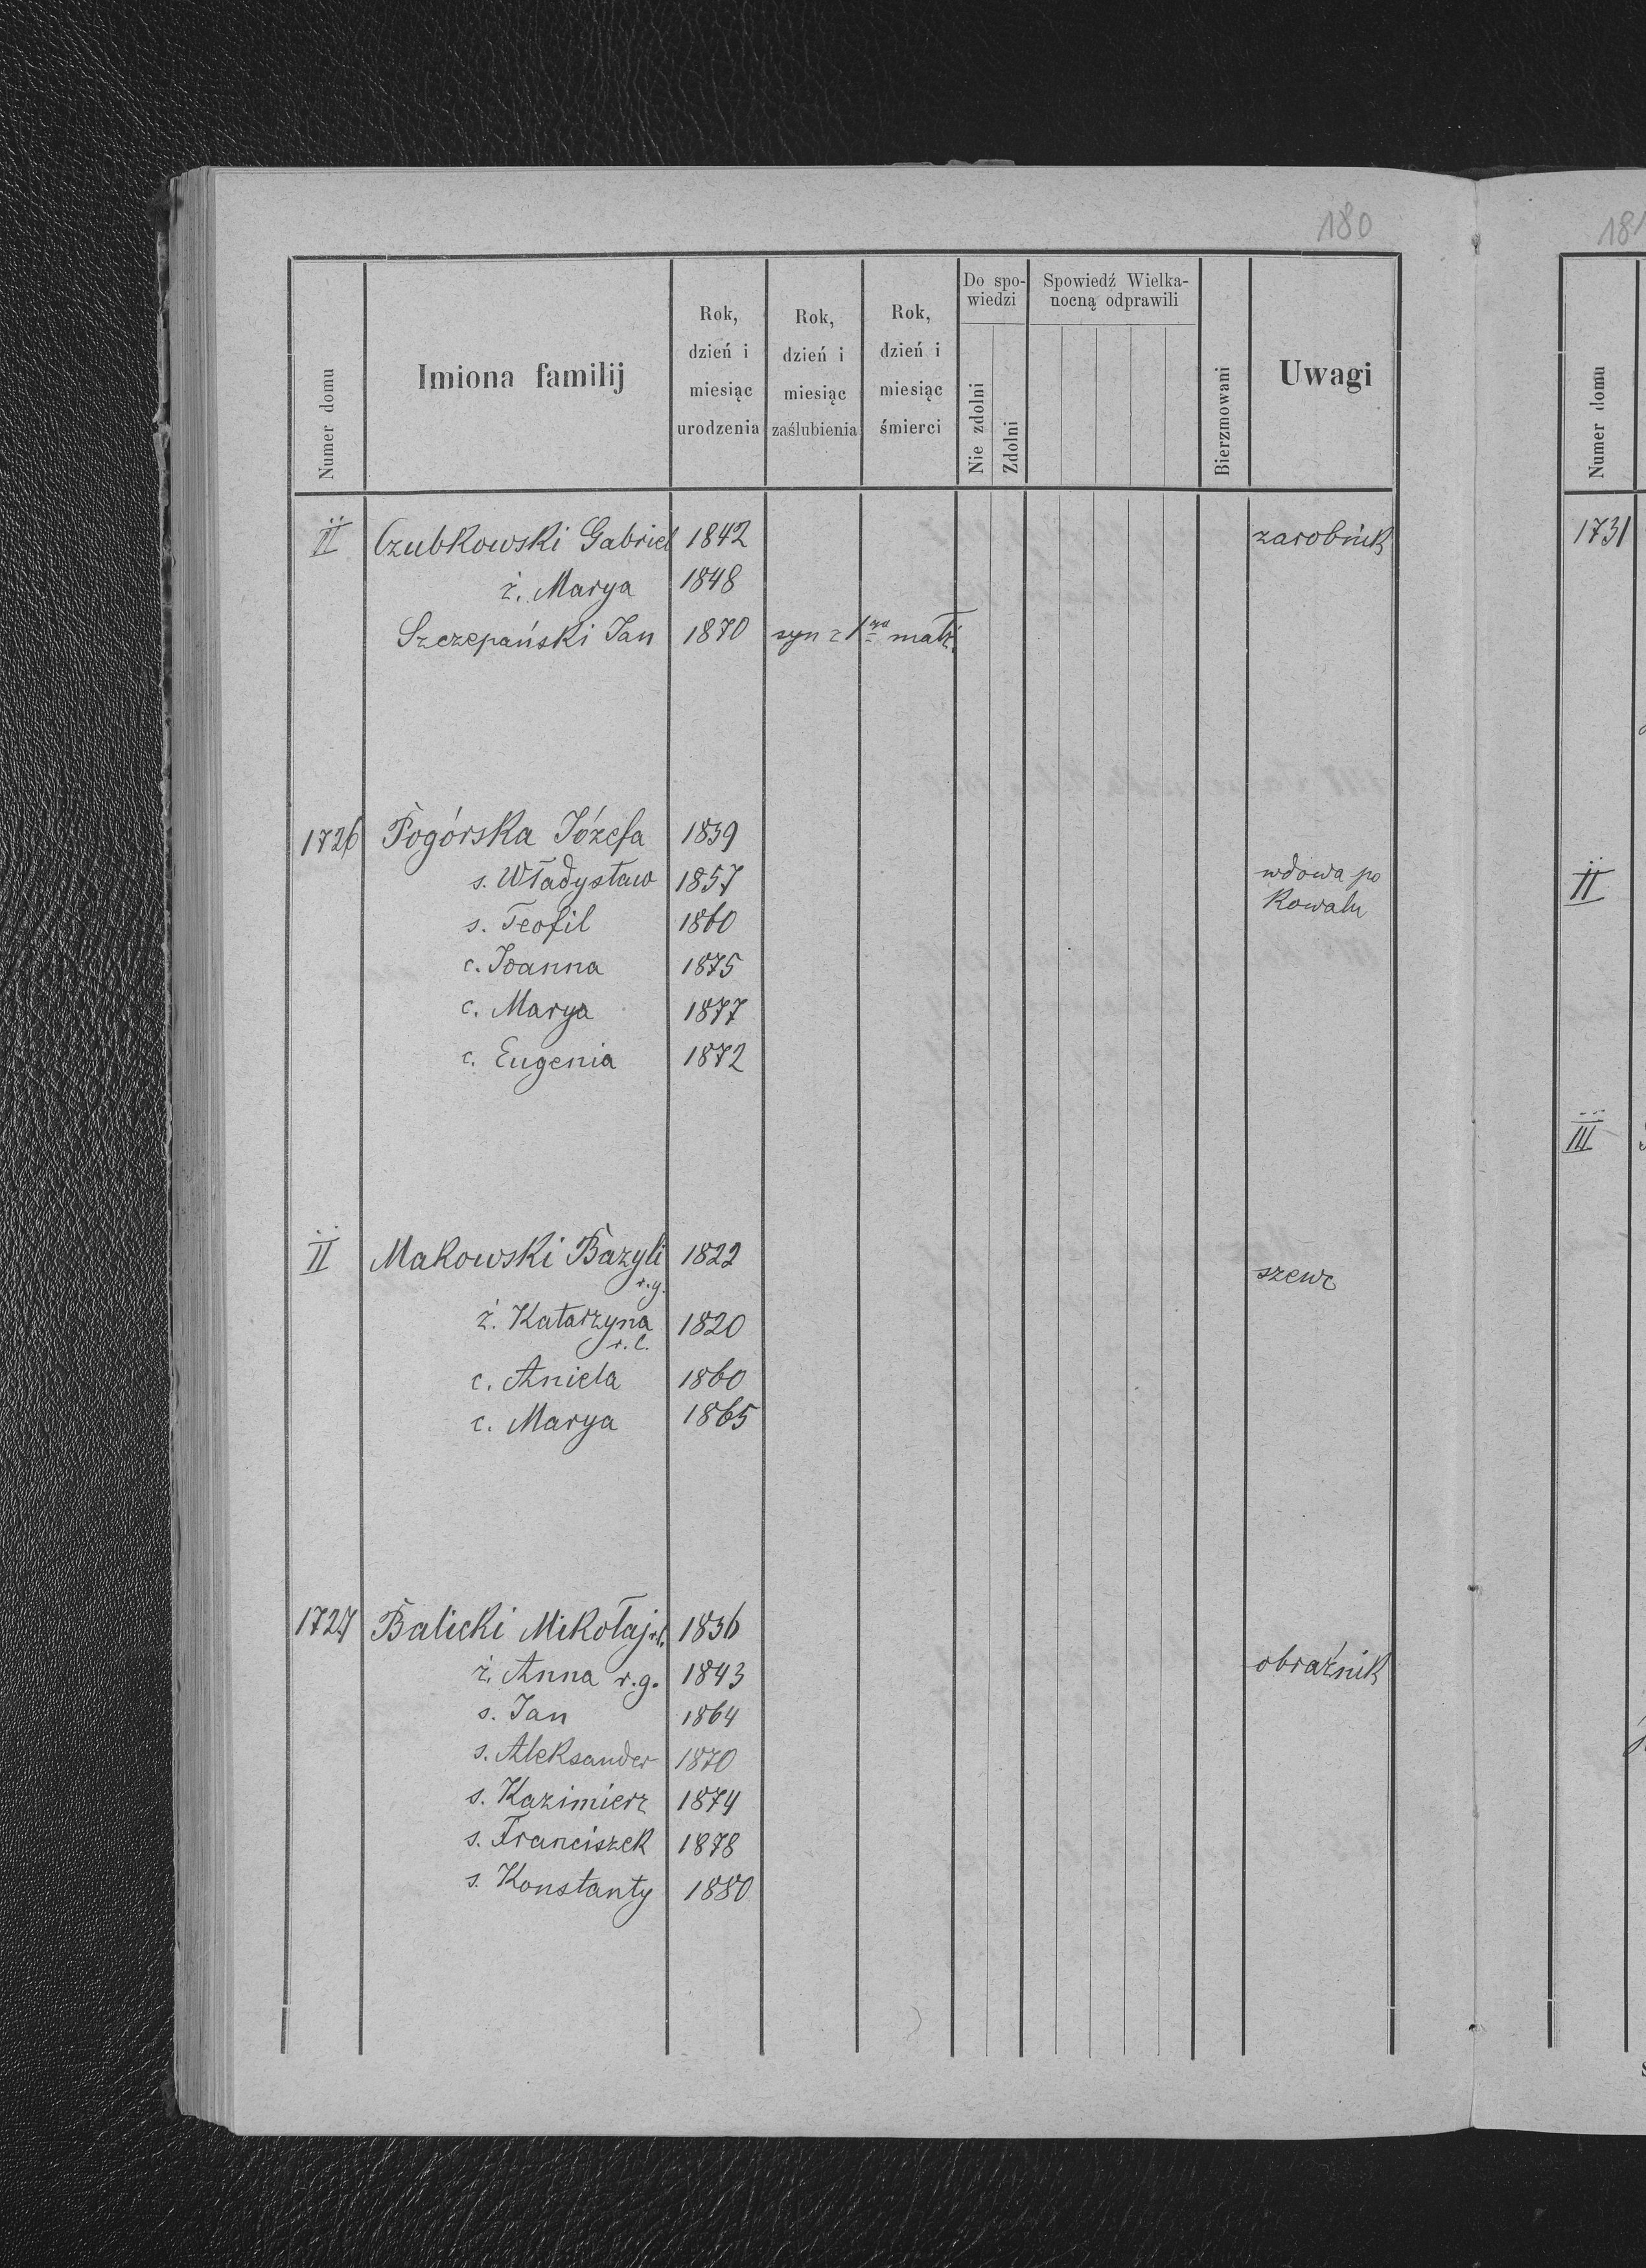 180
181
Numer domu
Imiona familij
Rok, dzień i miesiąc urodzenia
Rok, dzień i miesiąc zaślubienia
Rok, dzień i miesiąc śmierci
Do spo-
wiedzi
Nie zdolni
Zdolni
Spowiedź Wielka-
nocną odprawili
Bierzmowani
Uwagi
Numer domu
II Czubkowski Gabriel 1842 zarobnik
ż. Marya 1848
Szczepański Jan 1870 syn z 1go małż.
1726 Pogórska Józefa 1839
s. Władysław 1857 wdowa po
kowalu
s. Teofil 1860
c. Joanna 1875
c. Marya 1877
c. Eugenia 1872
II Makowski Bazyli 1822 szewc
r.g.
ż. Katarzyna 1820
r.l.
c. Aniela 1860
c. Marya 1865
1727 Balicki Mikołaj r.l. 1836
ż. Anna r.g. 1843 obraźnik
s. Jan 1864
s. Aleksander 1870
s. Kazimierz 1874
s. Franciszek 1878
s. Konstanty 1880
1731
II
III